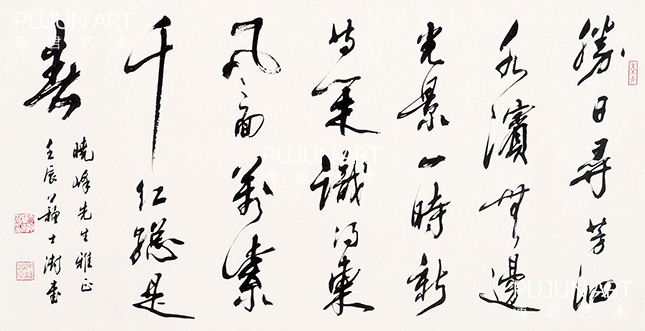 勝日尋芳泗
水濱無邊
光景一時新
等閒識得東
風面萬紫
千紅總是
春
曉峰先生雅正
壬辰蘇士澍書
PUJUN ART
浦君艺术
PUJUN ART
浦君艺术
PUJUN ART
浦君艺术
PUJUN ART
浦君艺术